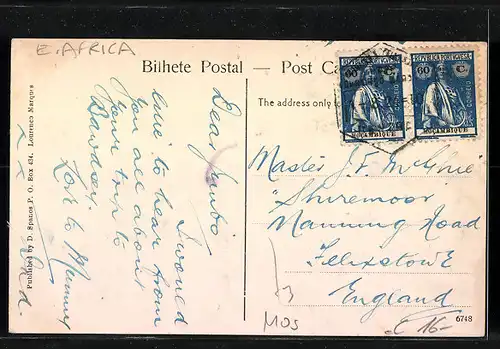 E. AFRICA
Bilhete Postal — Post Ca
The address only to
REPUBLICA PORTUGUESA
60 C.
CORREIO
MOÇAMBIQUE
REPUBLICA PORTUGUESA
60 C.
CORREIO
MOÇAMBIQUE
Dear Jumbo
I would
love to hear from
you all about
your trip to
Bawdsey.
Love to Mummy
x x
Master J. F. McGhie
"Shiremoor"
Manning Road
Felixstowe
England
MOS
16-
6748
Published by D. Spanos P. O. Box 434, Lourenco Marques